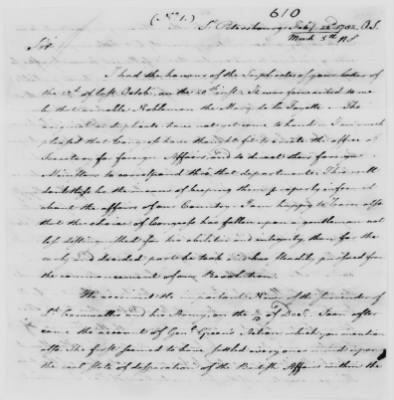 610
(No. 1.) St. Petersbourg Feby. 22d. 1782 O.S.
March 5th N.S.
Sir
I had the honour of the Triplicates of your letter of
the 23d. of last Octob: on the 20th inst: It was forwarded to me
by that amiable Nobleman the Marq: de la Fayette. The
original or duplicate have not yet come to hand. I am much
pleased that Congress have thought fit to create the office of
Secretary for foreign Affairs, and to direct their foreign
Ministers to correspond thro' that department. This will
doubtless be the means of keeping them properly informed
about the affairs of our Country. I am happy to learn also
that the choice of Congress has fallen upon a gentleman not
less distinguished for his abilities and integrity, than for the
early and decided part he took and has steadily pursued from
the commencement of our Revolution.
We received the important News of the surrender of
Ld. Cornwallis and his Army on the of Decr. Soon after
came the account of Genl. Green's Action which you mention
also. The first seemed to have settled every ones mind upon
the real State of desperation of the British Affairs within the